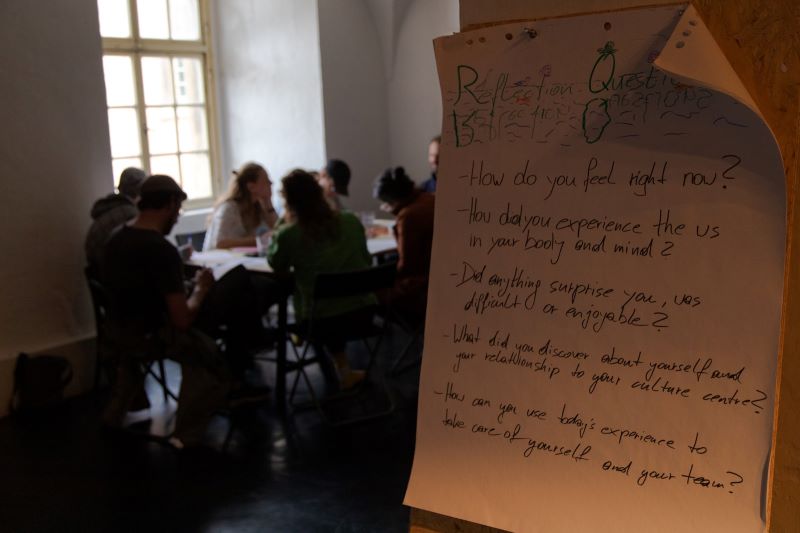 Reflection Questions
-How do you feel right now?
-How did you experience the us
in your body and mind?
-Did anything surprise you, was
difficult or enjoyable?
-What did you discover about yourself and
your relationship to your culture centre?
-How can you use today's experience to
take care of yourself and your team?